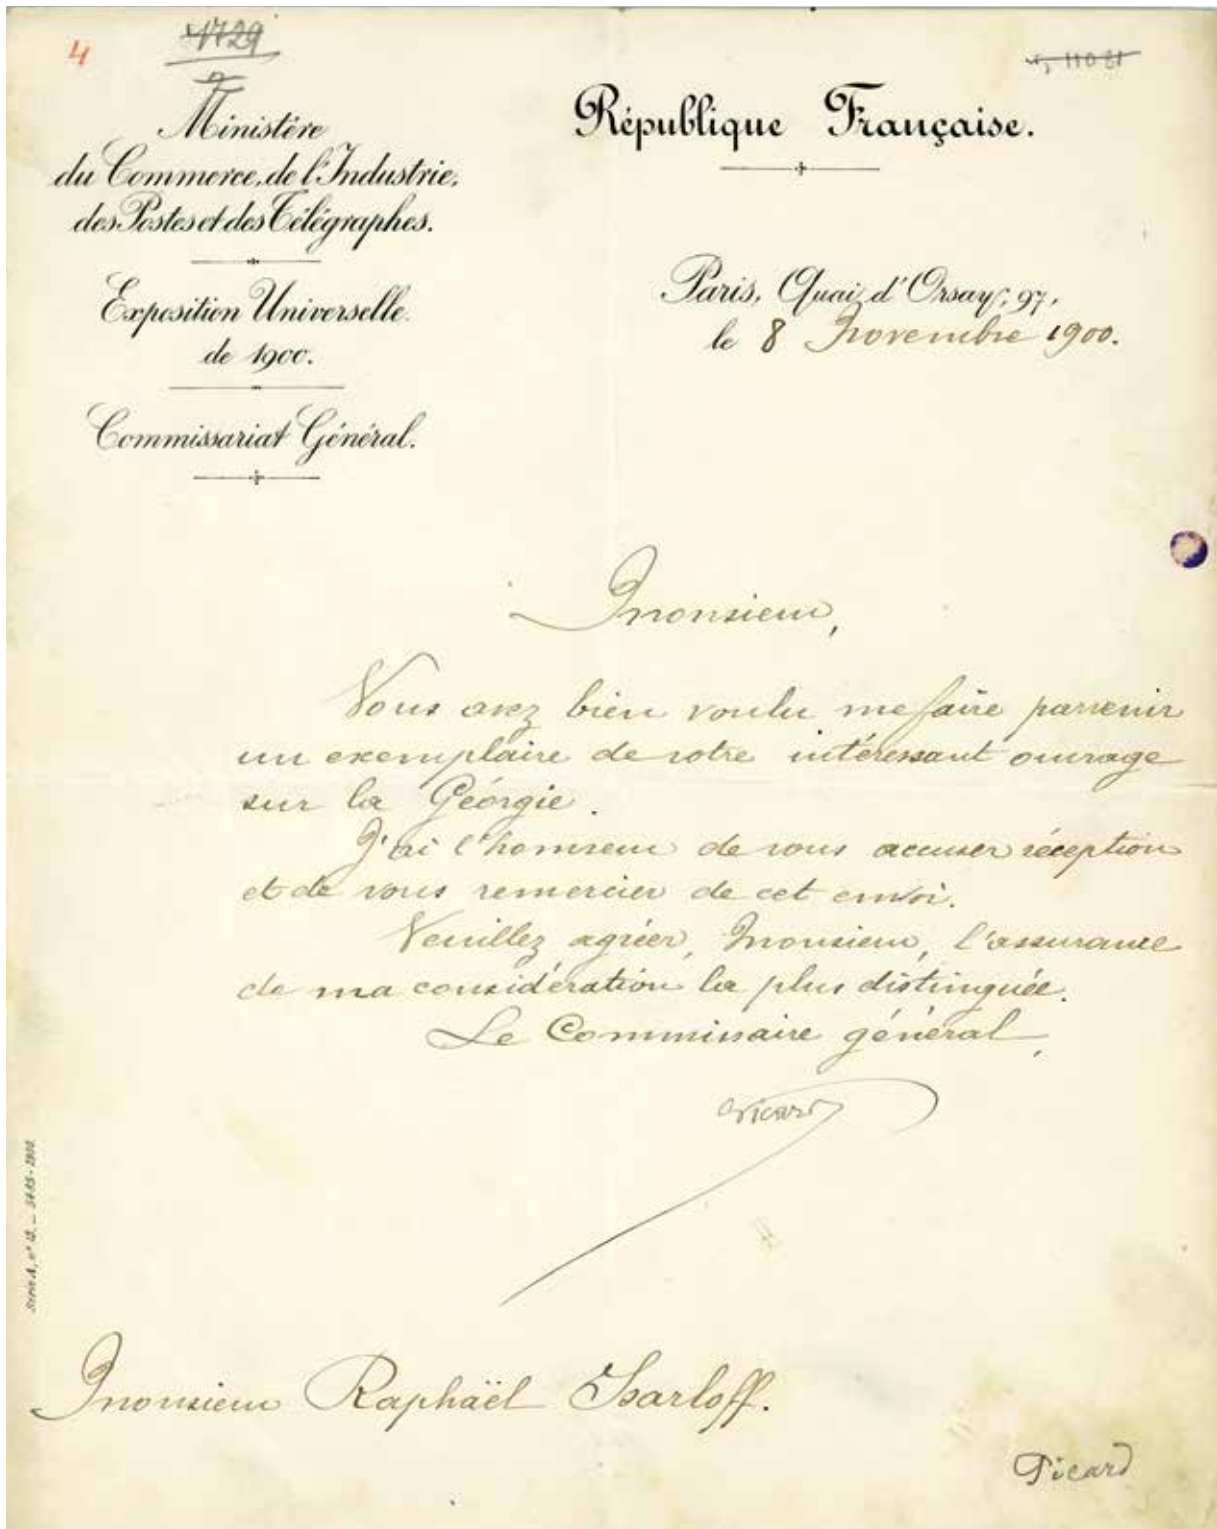 4
1729
11021
Ministère
du Commerce, de l'Industrie,
des Postes et des Télégraphes.
Exposition Universelle
de 1900.
Commissariat Général.
République Française.
Paris, Quai d'Orsay, 97,
le 8 Novembre 1900.
Monsieur,
Vous avez bien voulu me faire parvenir
un exemplaire de votre intéressant ouvrage
sur la Géorgie.
J'ai l'honneur de vous accuser réception
et de vous remercier de cet envoi.
Veuillez agréer, Monsieur, l'assurance
de ma considération la plus distinguée.
Le Commissaire général,
Picard
Monsieur Raphaël Isarloff.
Picard